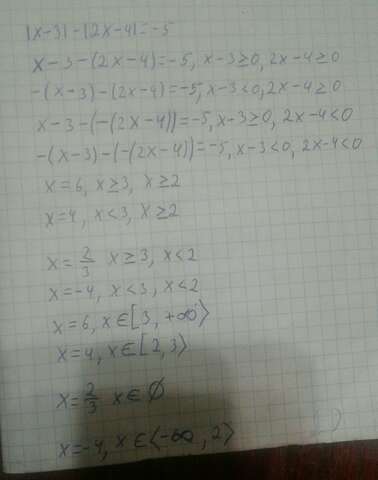 |x-3|-|2x-4|=-5
x-3-(2x-4)=-5, x-3≥0, 2x-4≥0
-(x-3)-(2x-4)=-5, x-3<0, 2x-4≥0
x-3-(-(2x-4))=-5, x-3≥0, 2x-4<0
-(x-3)-(-(2x-4))=-5, x-3<0, 2x-4<0
x=6, x≥3, x≥2
x=4, x<3, x≥2
x=2/3 x≥3, x<2
x=-4, x<3, x<2
x=6, x∈[3, +∞⟩
x=4, x∈[2,3⟩
x=2/3 x∈∅
x=-4, x∈⟨-∞, 2⟩